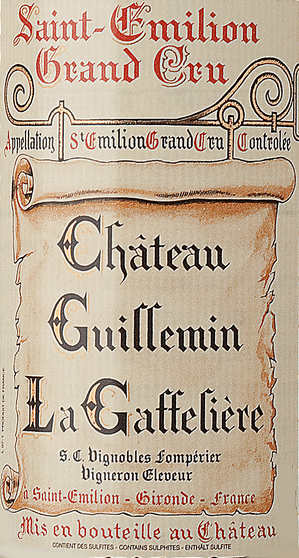 Saint-Emilion
Grand Cru
Appellation St Emilion Grand Cru Contrôlée
Château
Guillemin
La Gaffelière
S.C. Vignobles Fompérier
Vigneron Eleveur
à Saint-Emilion - Gironde - France
Mis en bouteille au Château
CONTIENT DES SULFITES - CONTAINS SULPHITES - ENTHÄLT SULFITE